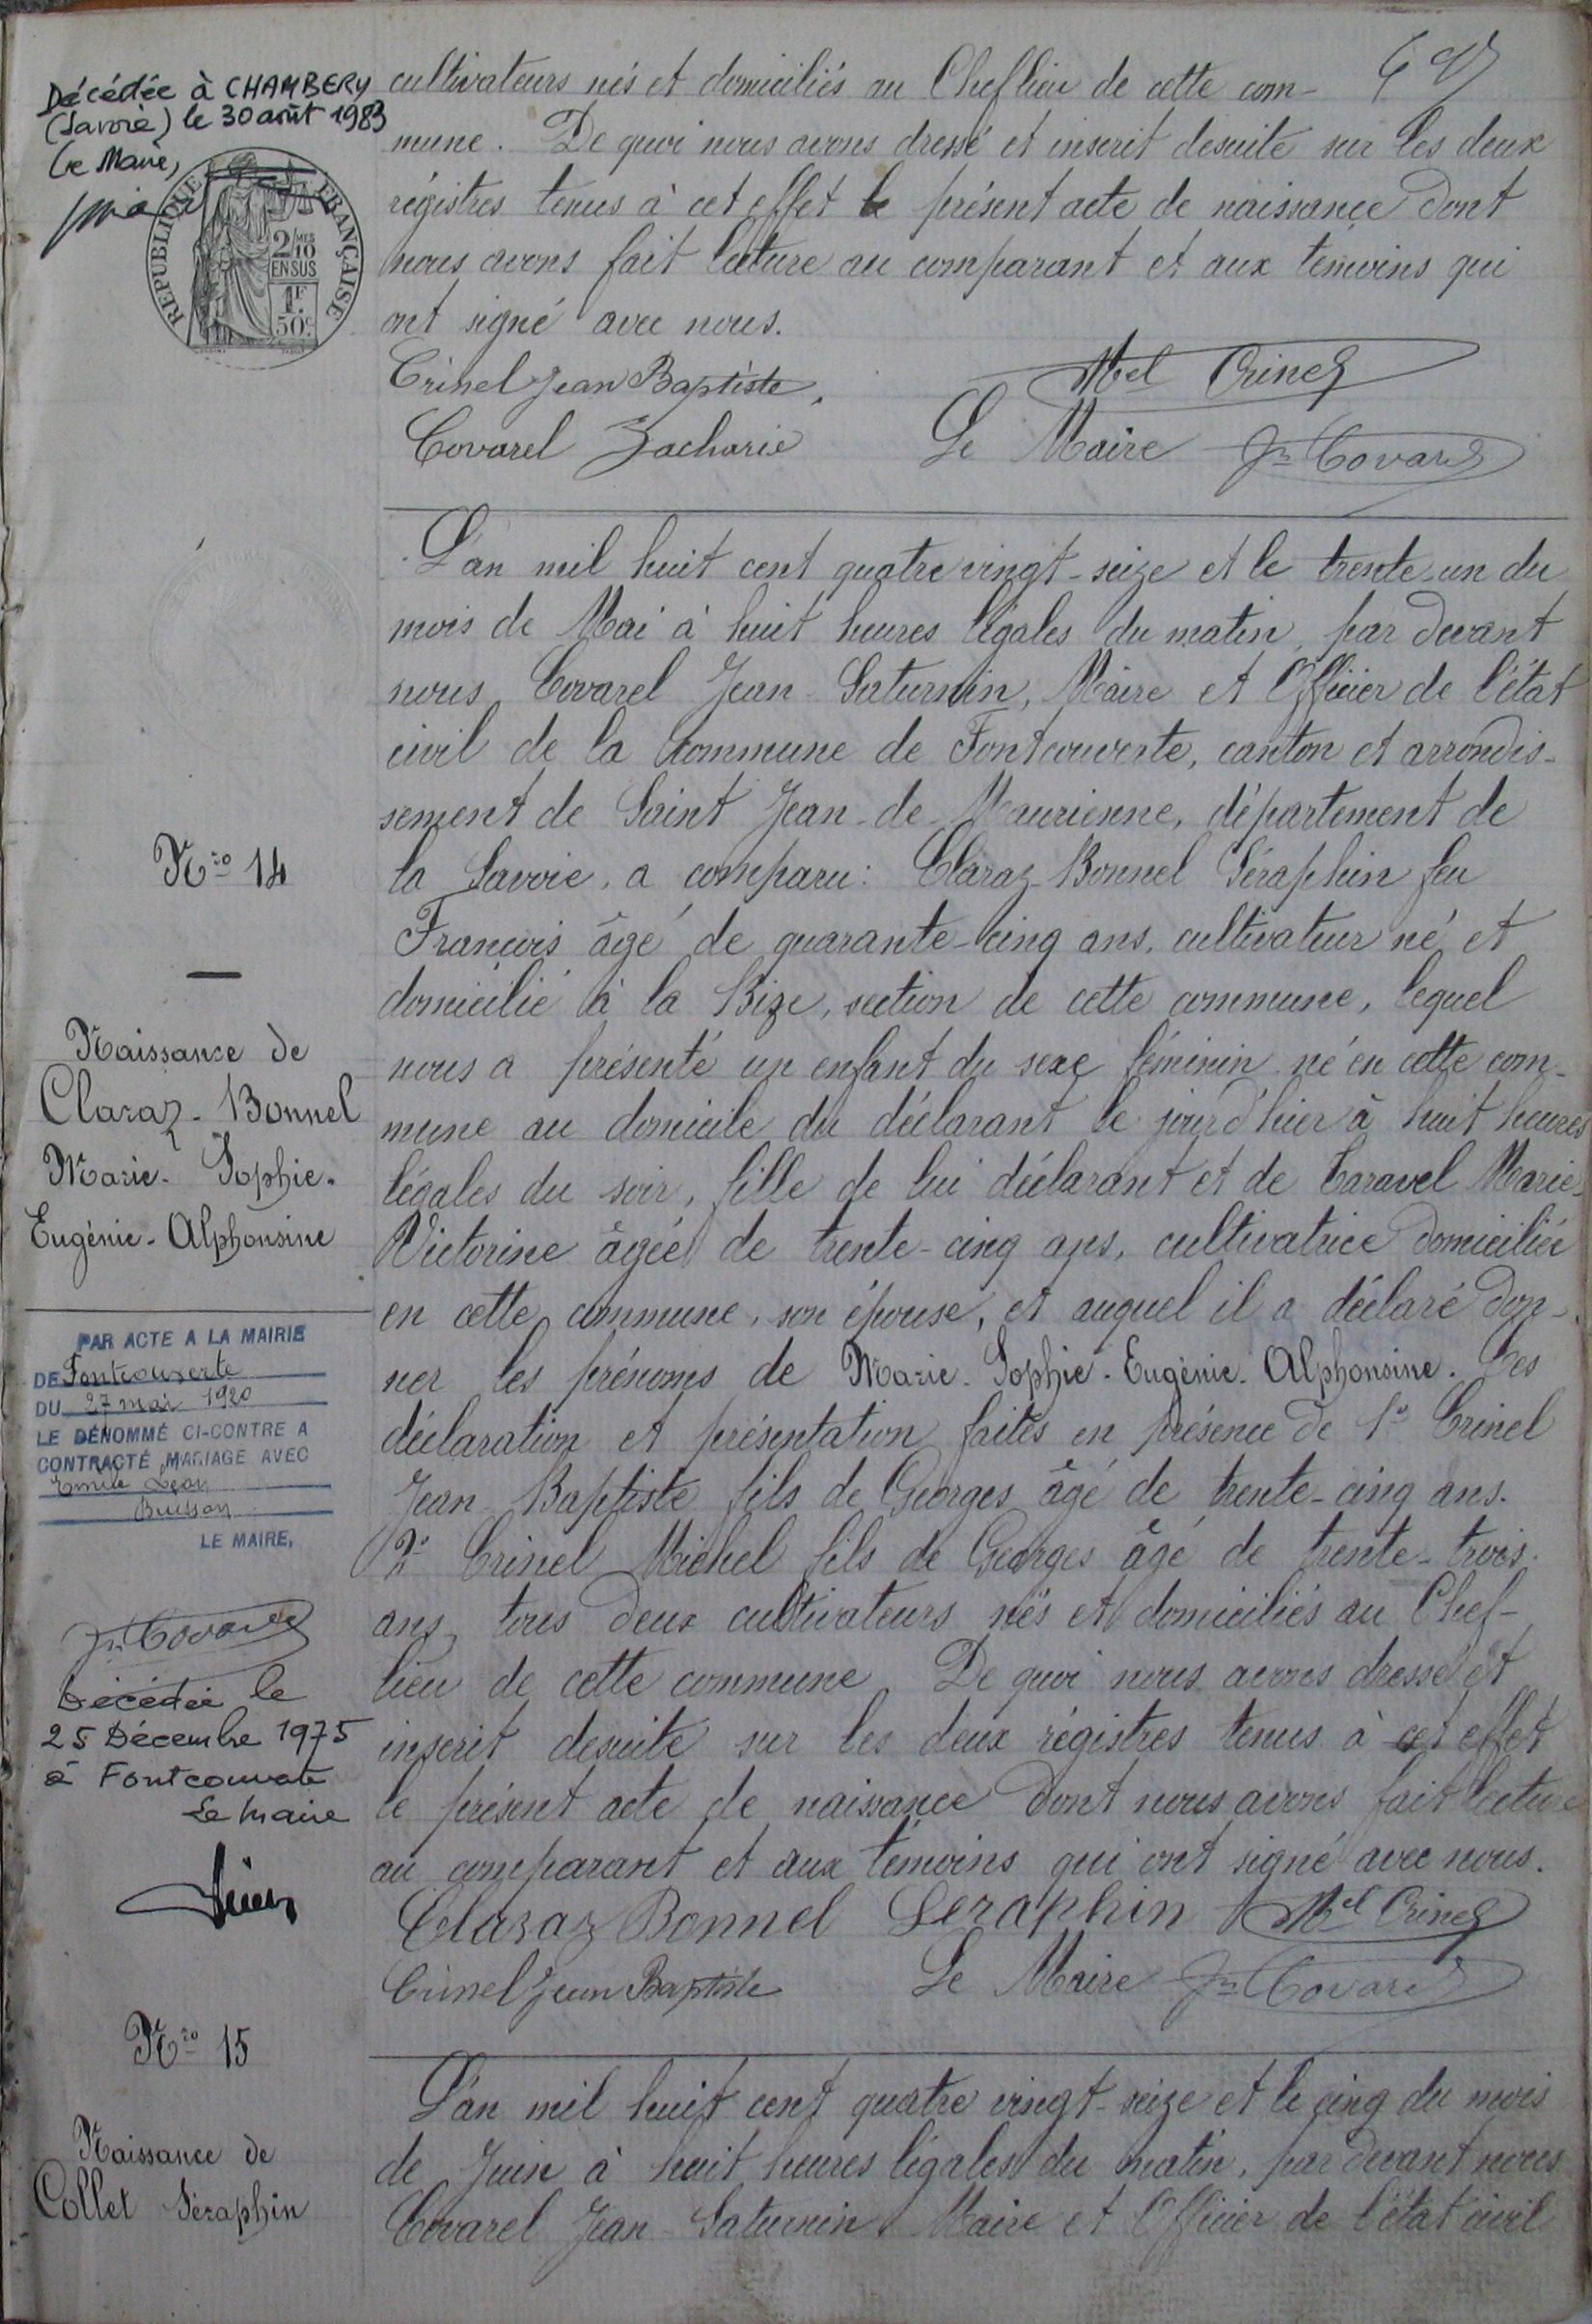 Décédée à CHAMBERY
(Savoie) le 30 août 1983
Le Maire,
REPUBLIQUE FRANÇAISE
2/10 MES
EN SUS
1F
50c
cultivateurs nés et domiciliés au Cheflieu de cette com-
mune. De quoi nous avons dressé et inscrit desuite sur les deux
régistres tenus à cet effet le présent acte de naissance dont
nous avons fait lecture au comparant et aux témoins qui
ont signé avec nous.
Crinel Jean Baptiste,
Mel Crinel
Covarel Zacharie
Le Maire Jn Covarel
L'an mil huit cent quatre vingt-seize et le trente-un du
mois de Mai à huit heures légales du matin, par devant
nous Covarel Jean Saturnin, Maire et Officier de l'état
civil de la commune de Fontcouverte, canton et arrondis-
sement de Saint Jean-de-Maurienne, département de
la Savoie, a comparu: Claraz-Bonnel Séraphin feu
François âgé de quarante-cinq ans, cultivateur né et
domicilié à la Bize, section de cette commune, lequel
nous a présenté un enfant du sexe féminin né en cette com-
mune au domicile du déclarant le jourd'hier à huit heures
légales du soir, fille de lui déclarant et de Caravel Marie
Victorine âgée de trente-cinq ans, cultivatrice domiciliée
en cette commune, son épouse, et auquel il a déclaré don-
ner les prénoms de Marie-Sophie-Eugénie-Alphonsine. Ces
déclaration et présentation faites en présence de 1o Crinel
Jean-Baptiste fils de Georges âgé de trente-cinq ans.
2o Crinel Michel fils de Georges âgé de trente-trois
ans, tous deux cultivateurs nés et domiciliés au Chef-
lieu de cette commune. De quoi nous avons dressé et
inscrit desuite sur les deux régistres tenus à cet effet
le présent acte de naissance dont nous avons fait lecture
au comparant et aux témoins qui ont signé avec nous.
Claraz Bonnel Seraphin Mel Crinel
Crinel Jean Baptiste
Le Maire Jn Covarel
Nro 14
Naissance de
Claraz-Bonnel
Marie-Sophie-
Eugénie-Alphonsine
PAR ACTE A LA MAIRIE
DE Fontcouverte
DU 27 mai 1920
LE DÉNOMMÉ CI-CONTRE A
CONTRACTÉ MARIAGE AVEC
Emile Léon
Buisson
LE MAIRE,
Jn Covarel
Décédée le
25 Décembre 1975
à Fontcouverte
Le Maire
Nro 15
Naissance de
Collet Séraphin
L'an mil huit cent quatre vingt-seize et le cinq du mois
de Juin à huit heures légales du matin, par devant nous
Covarel Jean Saturnin Maire et Officier de l'état civil